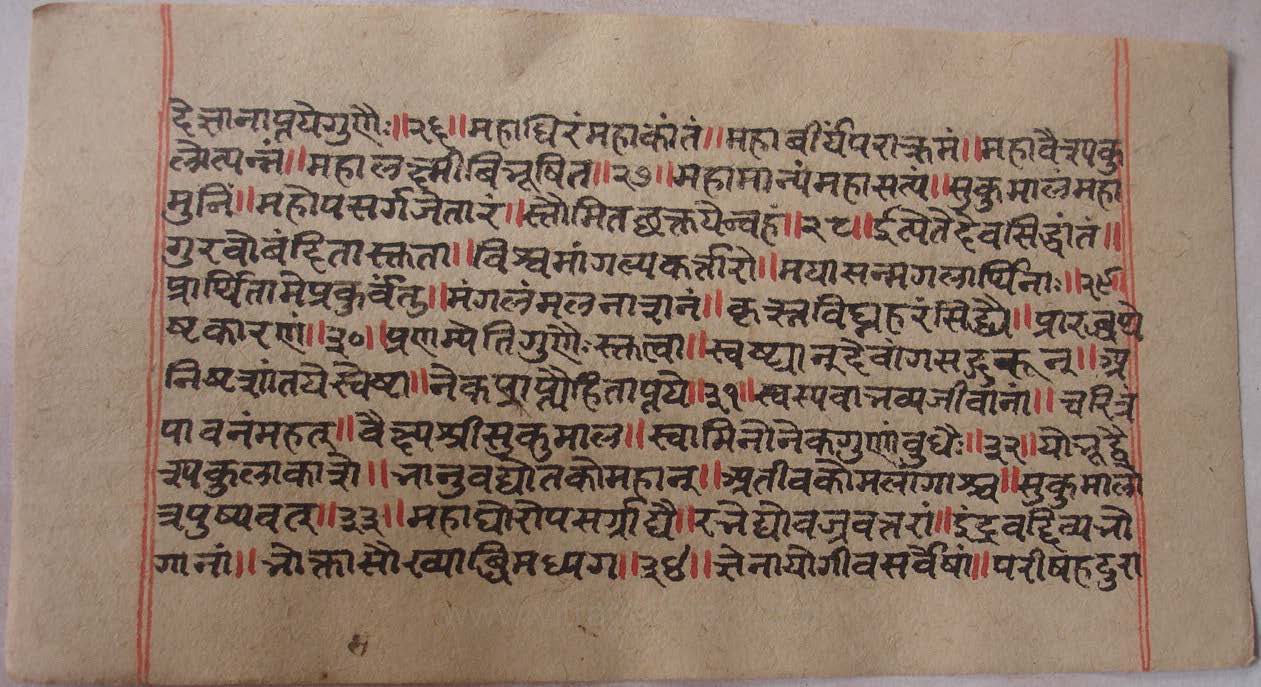 देशानाप्तयेगुणैः॥२६॥महाधिरंमहाकांतं॥महाबीर्यपराक्रमं॥महावैश्यकु
लोत्पन्नं॥महालक्ष्मीबिभूषित॥२७॥महामान्यंमहासत्यं॥सुकुमालंमहा
मुनिं॥महोपसर्गजेतारं॥स्तौमितछक्तयैन्वहं॥२८॥ईत्येतेदेवसिद्धांतं॥
गुरवोबंदितास्कृता॥विश्वमांगल्यकर्त्तारो॥मयासन्मगलार्थिनाः॥२९॥
प्रार्थितामेप्रकुर्वंतु॥मंगलंमलनाशनं॥कृस्नविघ्नहरंसिद्ध्यै॥प्रारब्धपे
ष्टकारणं॥३०॥प्रणम्येतिगुणैःस्कृत्वा॥स्वष्टान्देवांगसद्गुरून्॥अ
निष्टशांतयेस्वेष्टा॥नेकप्राप्त्यैहिताप्तये॥३१॥स्वस्यवाभव्यजीवानां॥चरित्रं
पावनंमहत्॥वैश्यश्रीसुकुमाल॥स्वामिनोनेकगुणांवुधैः॥३२॥योभूद्वै
श्यकुलाकाशे॥भानुवद्योतकोमहान्॥अतीवकोमलांगाश्च॥सुकुमालो
त्रपुष्यवत्॥३३॥महाघोरोपसर्गाद्यै॥रभेद्योवज्रवत्तरां॥इंद्रवद्दिव्यभो
गानां॥भोक्तासौख्याब्धिमध्यग॥३४॥जेनायोगीवसर्वेषां॥परीषहदुरा